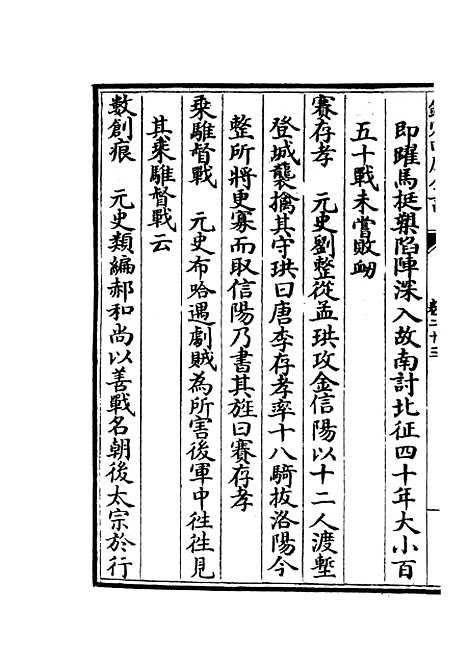 即躍馬挺槊陷陣深入故南討北征四十年大小百
五十戰未嘗敗衂
賽存孝　元史劉整從孟珙攻金信陽以十二人渡塹
登城襲擒其守珙曰唐李存孝率十八騎拔洛陽今
整所將更寡而取信陽乃書其旌曰賽存孝
乘騅督戰　元史布哈遇劇賊為所害後軍中徃徃見
其乘騅督戰云
數創痕　元史類編郝和尚以善戰名朝後太宗於行